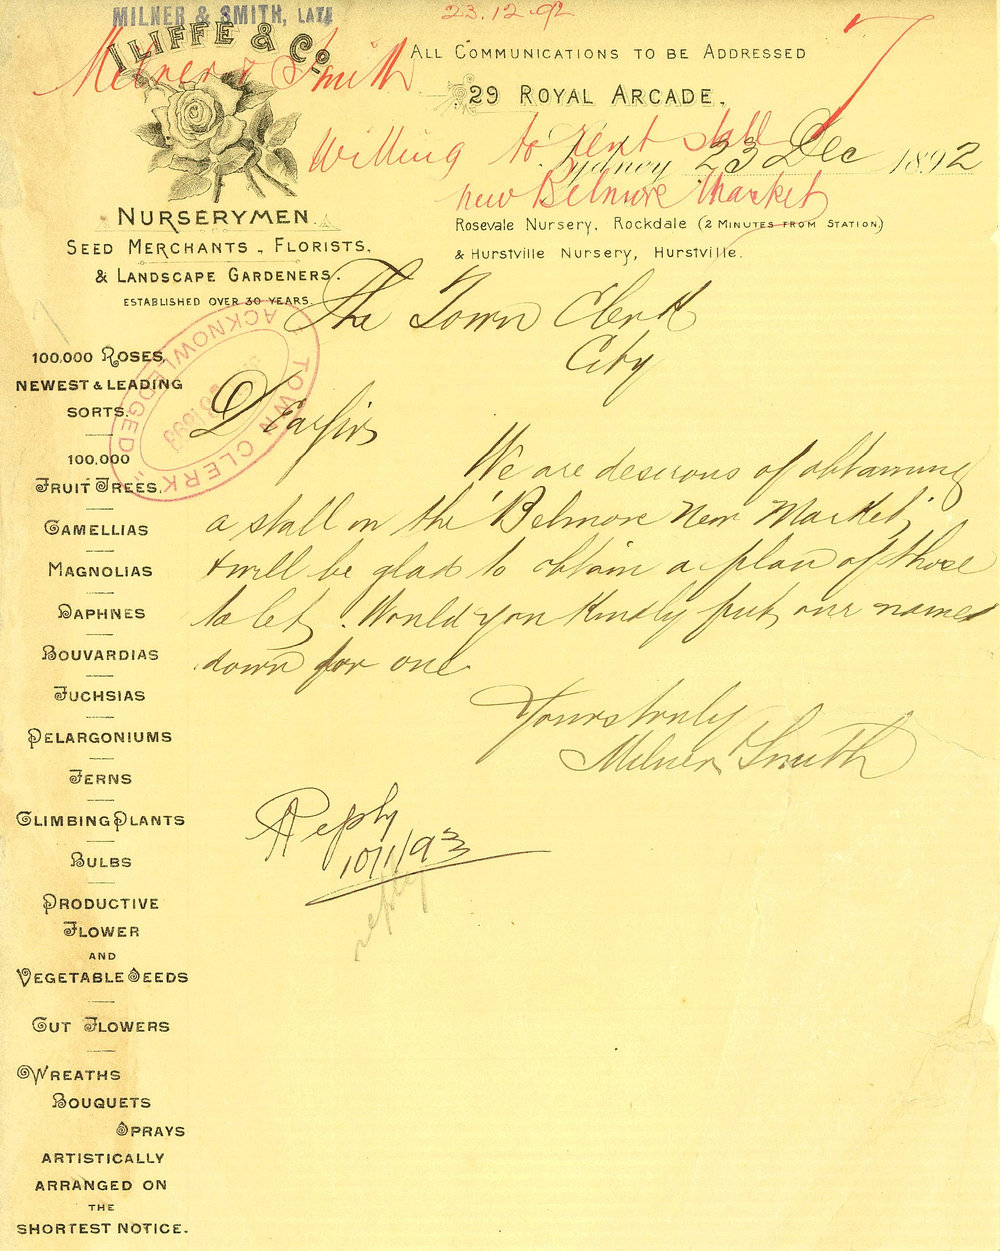 23.12.92
MILNER & SMITH, LATE
ILIFFE & Co.
Milner & Smith
ALL COMMUNICATIONS TO BE ADDRESSED
29 ROYAL ARCADE,
Willing to rent stall
new Belmore Market
Sydney 23 Dec 1892
NURSERYMEN.
SEED MERCHANTS, FLORISTS,
& LANDSCAPE GARDENERS.
ESTABLISHED OVER 30 YEARS.
ROSEVALE NURSERY, ROCKDALE (2 MINUTES FROM STATION)
& HURSTVILLE NURSERY, HURSTVILLE.
TOWN CLERK
ACKNOWLEDGED
100,000 ROSES,
NEWEST & LEADING
SORTS.
100,000
FRUIT TREES.
CAMELLIAS
MAGNOLIAS
DAPHNES
BOUVARDIAS
FUCHSIAS
PELARGONIUMS
FERNS
CLIMBING PLANTS
BULBS
PRODUCTIVE
FLOWER
AND
VEGETABLE SEEDS
CUT FLOWERS
WREATHS
BOUQUETS
SPRAYS
ARTISTICALLY
ARRANGED ON
THE
SHORTEST NOTICE.
The Town Clerk
City
Dear Sir
We are desirous of obtaining
a stall in the "Belmore New Market"
& will be glad to obtain a plan of those
to let. Would you kindly put our names
down for one
Yours truly
Milner & Smith
Reply
10/1/93
reply